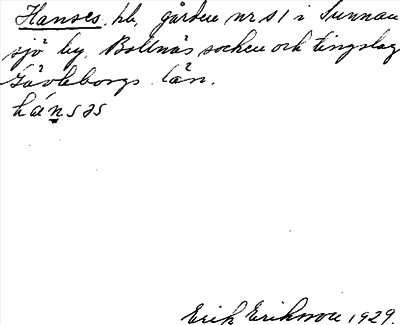 Hanses, hb, gården nr 51 i Sunnan
sjö by, Bollnäs socken och tingslag
Gävleborgs län.
hánsəs
Erik Eriksson 1929.